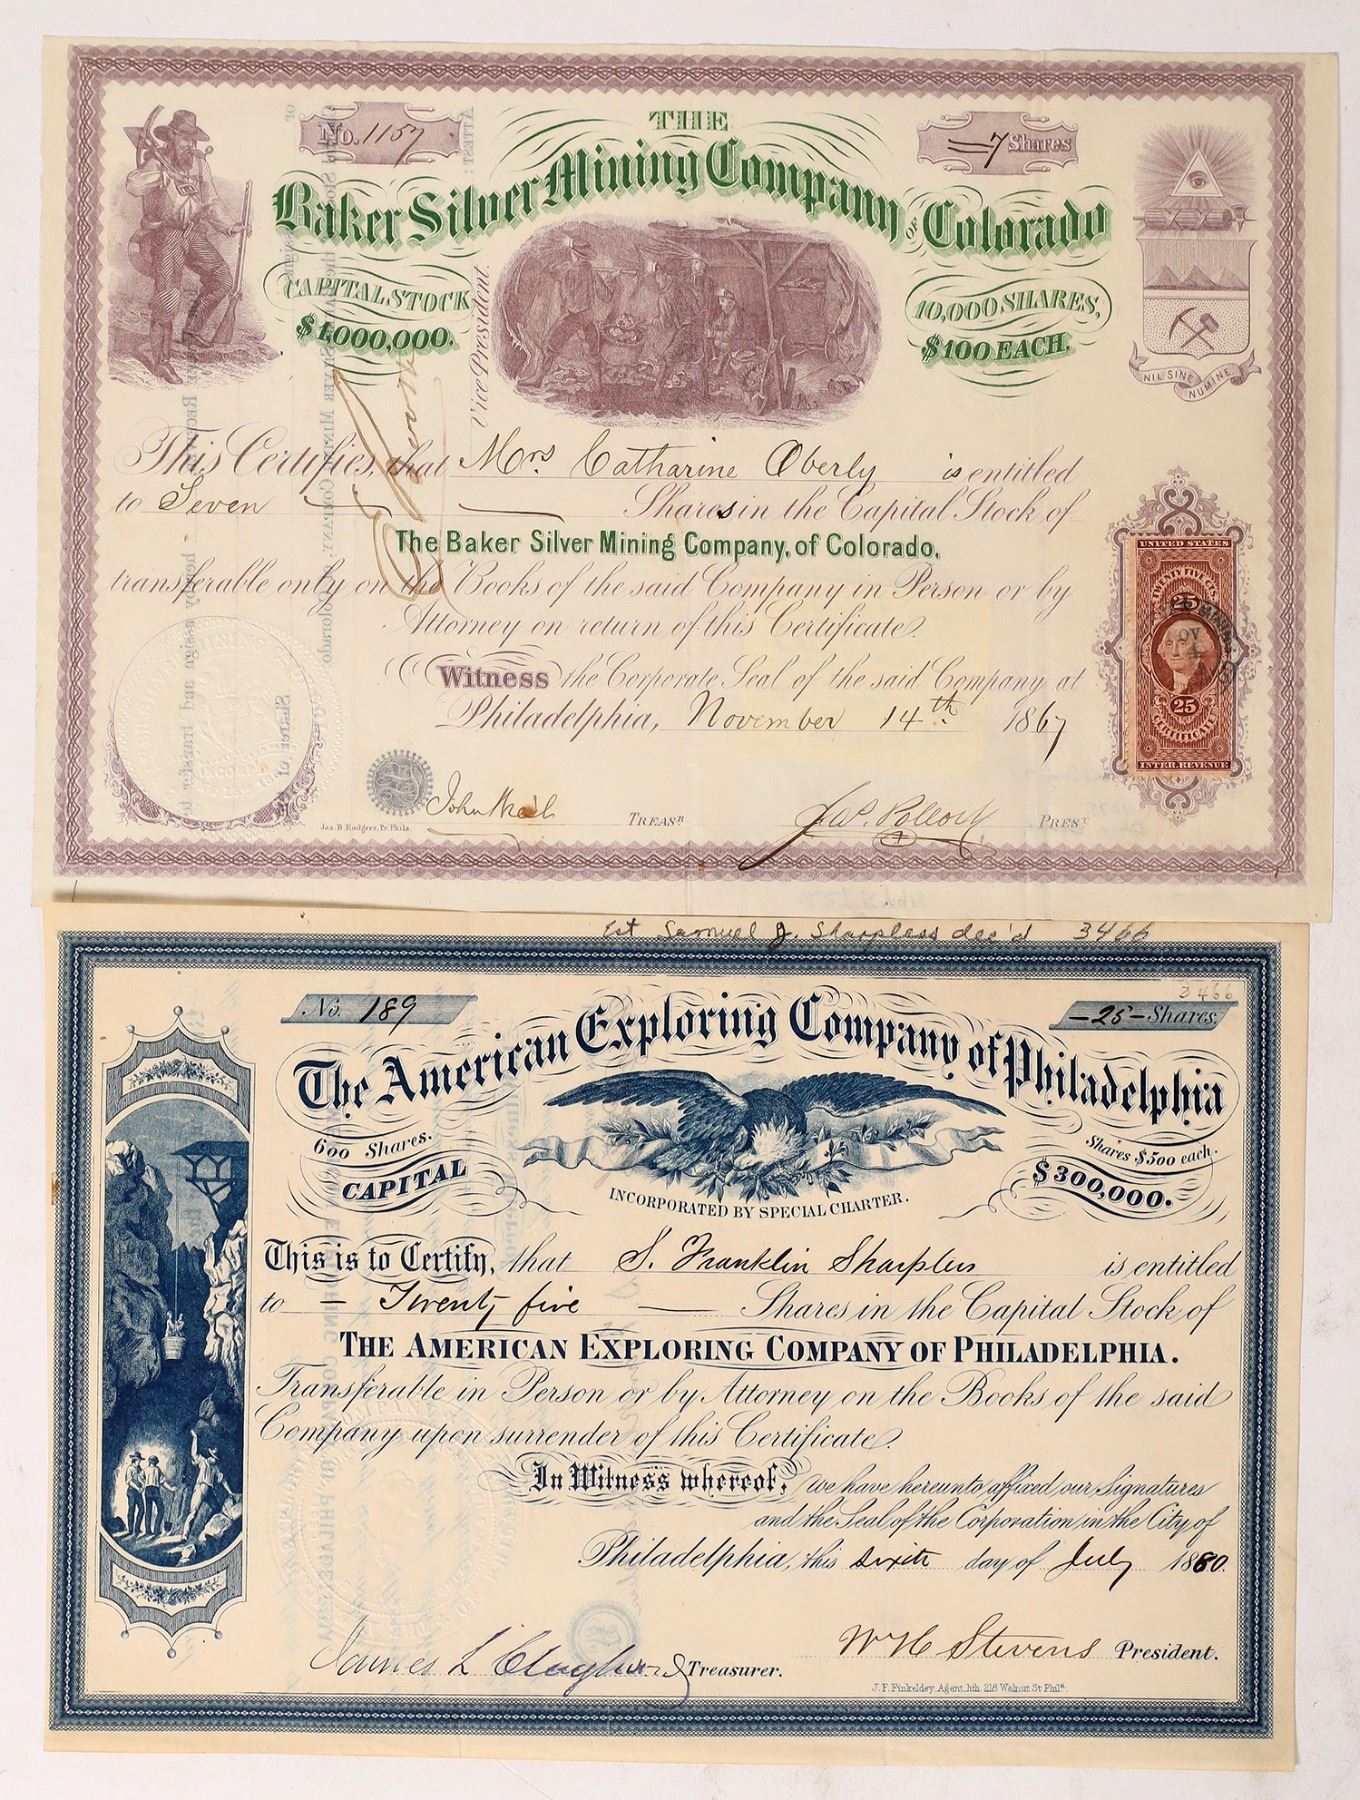 No. 1157
7 Shares
THE
Baker Silver Mining Company OF Colorado
CAPITAL STOCK
$1,000,000.
10,000 SHARES,
$100 EACH.
NIL SINE NUMINE
Vice President
This Certifies, that Mrs Catharine Oberly is entitled
to Seven Shares in the Capital Stock of
The Baker Silver Mining Company, of Colorado,
transferable only on the Books of the said Company in Person or by
Attorney on return of this Certificate.
Witness the Corporate Seal of the said Company at
Philadelphia, November 14th 1867
UNITED STATES
TWENTY FIVE CTS.
25
25
CERTIFICATE
INTER. REVENUE
TREASR
PREST
Jas. B. Rodgers, Pr. Phila.
Est Samuel J. Sharpless dec'd 3466
3466
No. 189
-25- Shares.
The American Exploring Company of Philadelphia
600 Shares.
CAPITAL
Shares $500 each.
$300,000.
INCORPORATED BY SPECIAL CHARTER.
This is to Certify, that S. Franklin Sharpless is entitled
to - Twenty five Shares in the Capital Stock of
THE AMERICAN EXPLORING COMPANY OF PHILADELPHIA.
Transferable in Person or by Attorney on the Books of the said
Company upon surrender of this Certificate.
In Witness whereof, we have hereunto affixed our Signatures
and the Seal of the Corporation in the City of
Philadelphia, this sixth day of July 1880.
James L Claghorn Treasurer.
W H Stevens President.
J. F. Finkeldey Agent, lith. 218 Walnut St Phila.